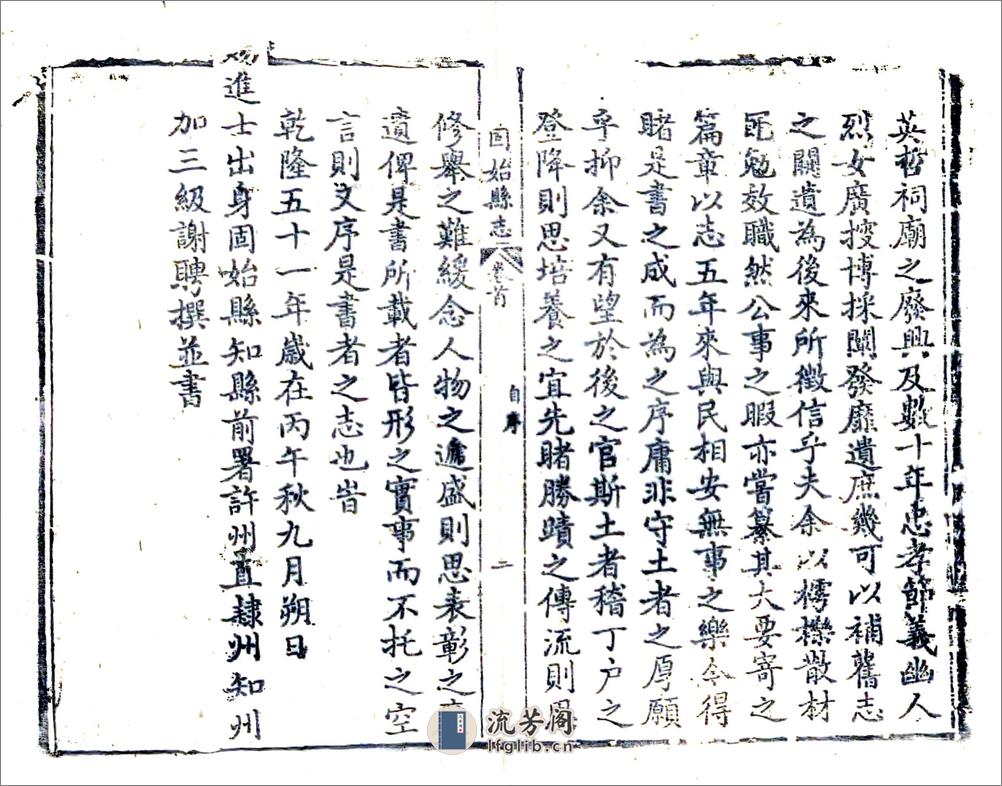 英哲祠廟之廢興及數十年忠孝節義幽人
烈女廣搜博採闡發靡遺庶幾可以補舊志
之闕遺為後來所徵信乎夫余以樗櫟散材
黽勉效職然公事之暇亦嘗纂其大要寄之
篇章以志五年來與民相安無事之樂今得
睹是書之成而為之序庸非守土者之厚願
乎抑余又有望於後之官斯土者稽丁户之
登降則思培養之宜先睹勝蹟之傳流則
固始縣志
卷首
自序
二
修舉之難緩念人物之遞盛則思表彰之
遺俾是書所載者皆形之實事而不托之空
言則文序是書者之志也旹
乾隆五十一年歲在丙午秋九月朔日
賜進士出身固始縣知縣前署許州直隸州知州
加三級謝聘撰並書
流芳阁
lfglib.cn